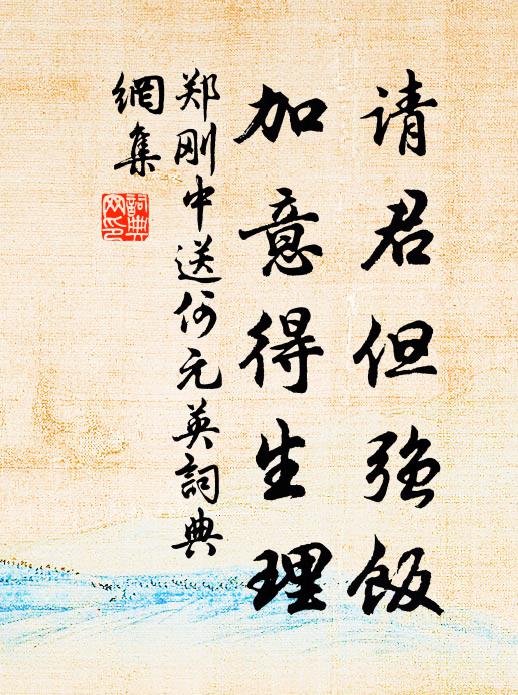 请君但强饭
加意得生理
郑刚中送何元英词典
網集
詞典網印